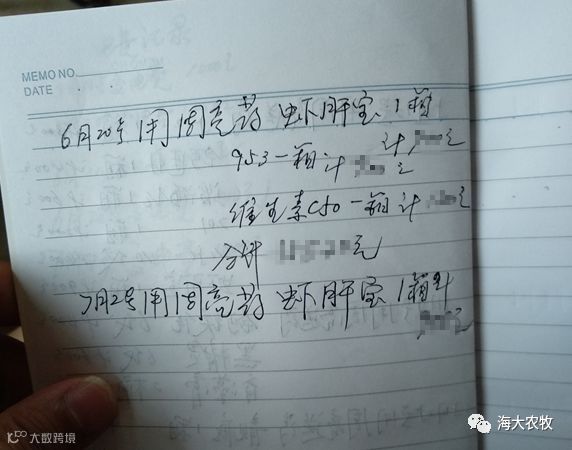 MEMO NO.
DATE . .
6月20号用周亮药 虾肝宝1箱
计 元
953一箱计 元
维生素C50一箱计 元
合计 元
7月2号用周亮药 虾肝宝1箱计
元
海大农牧
大数跨境